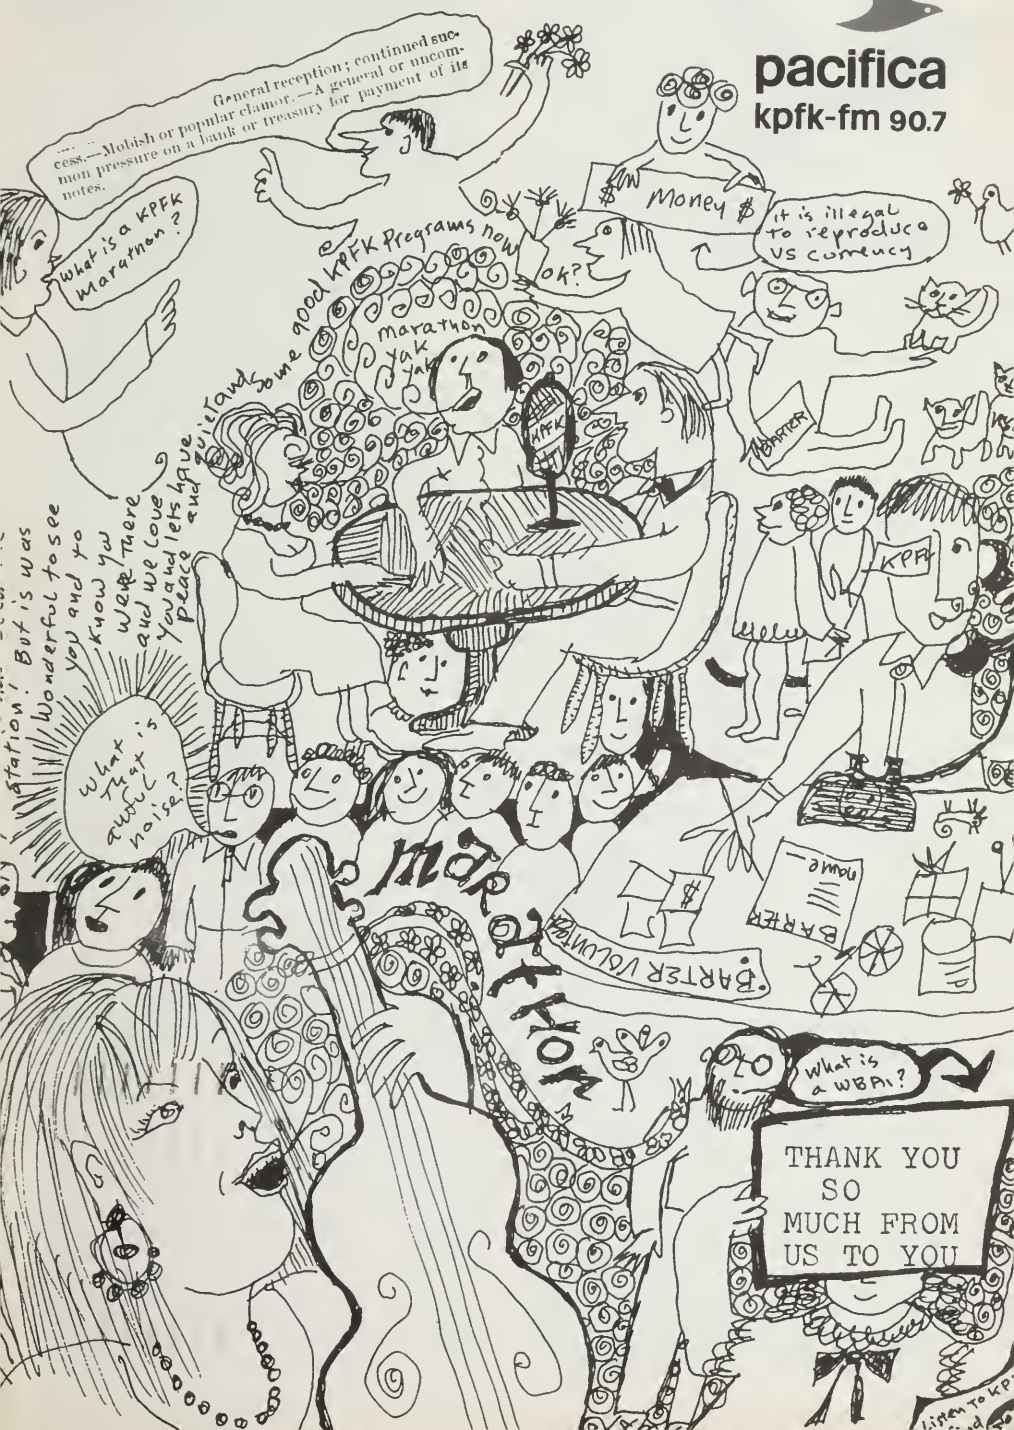 pacifica
kpfk-fm 90.7
General reception; continued suc-
cess.—Mobish or popular clamor.—A general or uncom-
mon pressure on a bank or treasury for payment of its
notes.
What is a KPFK
Marathon?
$ Money $
It is illegal
to reproduce
US currency
OK?
some good KPFK Programs now
marathon
yak
yak
KPFK
BARTER
KPFK
station! But is was
Wonderful to see
you and to
know you
were there
and we love
you and lets have
peace and quiet and
What is
that
awful
noise?
marathon
$
BARTER
home
BARTER VOLUNTEER
What is
a WBAI?
THANK YOU
SO
MUCH FROM
US TO YOU
Listen to